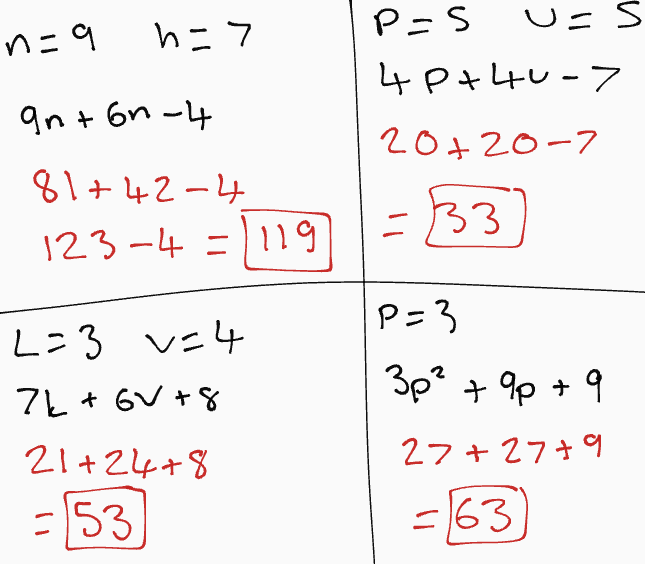 n = 9 h = 7
9n + 6n - 4
81 + 42 - 4
123 - 4 = 119
P = 5 U = 5
4P + 4U - 7
20 + 20 - 7
= 33
L = 3 V = 4
7L + 6V + 8
21 + 24 + 8
= 53
P = 3
3p² + 9p + 9
27 + 27 + 9
= 63